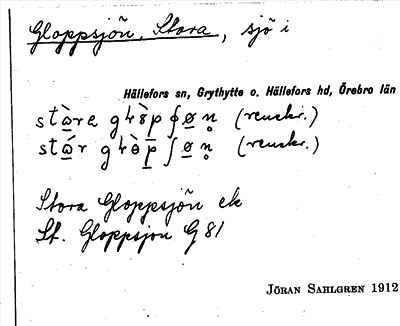 Gloppsjön, Stora, sjö i
Hällefors sn, Grythytte o. Hällefors hd, Örebro län
(renskr.)
(renskr.)
Stora Gloppsjön ek
St. Gloppsjon G 81
JÖRAN SAHLGREN 1912